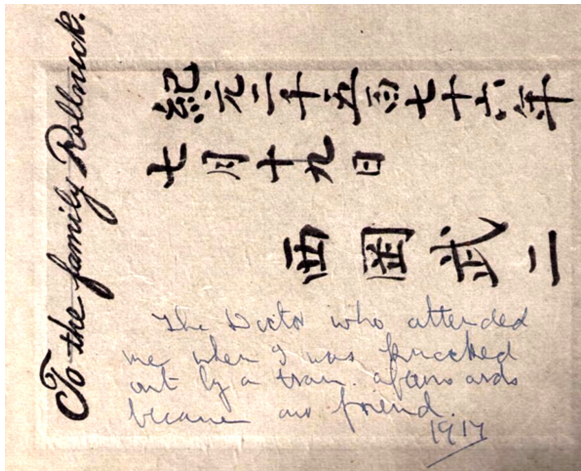 To the family Rollnick.
紀元二千五百七十六年
七月十九日
西岡武二
The Doctor who attended
me when I was knocked
out by a tram. afterwards
became our friend.
1917